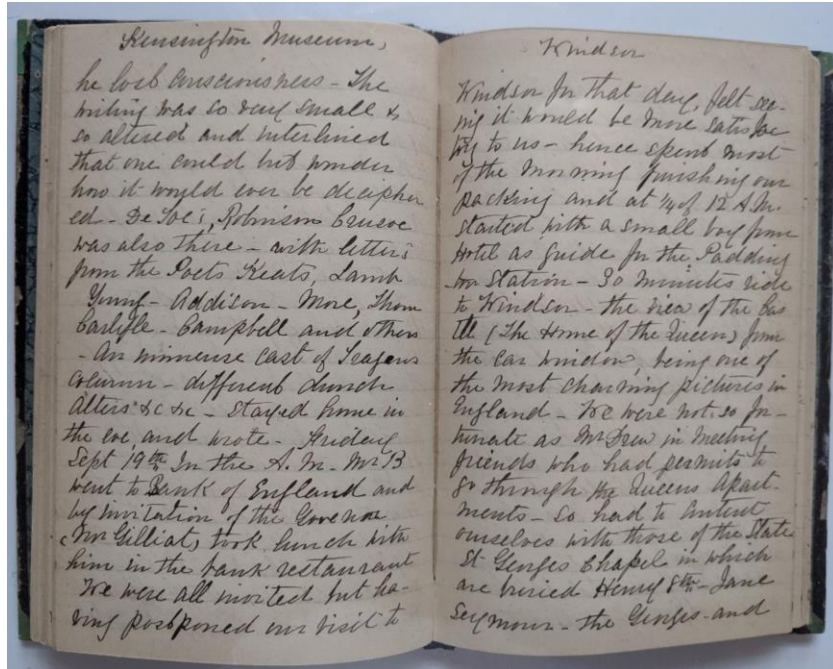 Kensington Museum,
he lost consciousness - The
writing was so very small &
so altered and interlined
that one could but wonder
how it would ever be decipher
ed - De Foe's, Robinson Crusoe
was also there - with letters
from the Poets Keats, Lamb
Young - Addison - More, Thom
Carlyle - Campbell and others
- An immense cast of Tragens
Column - different church
Alters &c &c - Stayed home in
the eve, and wrote - Friday
Sept 19th In the A.M. Mr B
went to Bank of England and
by invitation of the Governor
(Mr Gilliat) took lunch with
him in the bank restaurant
We were all invited but ha-
ving postponed our visit to
Windsor
Windsor for that day, felt see-
ing it would be more satisfac
tory to us - hence spent most
of the morning finishing our
packing and at 1/4 of 12 A.M.
started with a small boy from
Hotel as guide for the Padding
ton Station - 30 minutes ride
to Windsor - the view of the Cas
tle (The Home of the Queen) from
the car window, being one of
the most charming pictures in
England - We were not so for-
tunate as Mr Drew in meeting
friends who had permits to
go through the Queens Apart-
ments - So had to content
ourselves with those of the State
St Georges Chapel in which
are buried Henry 8th - Jane
Seymour - the Georges - and